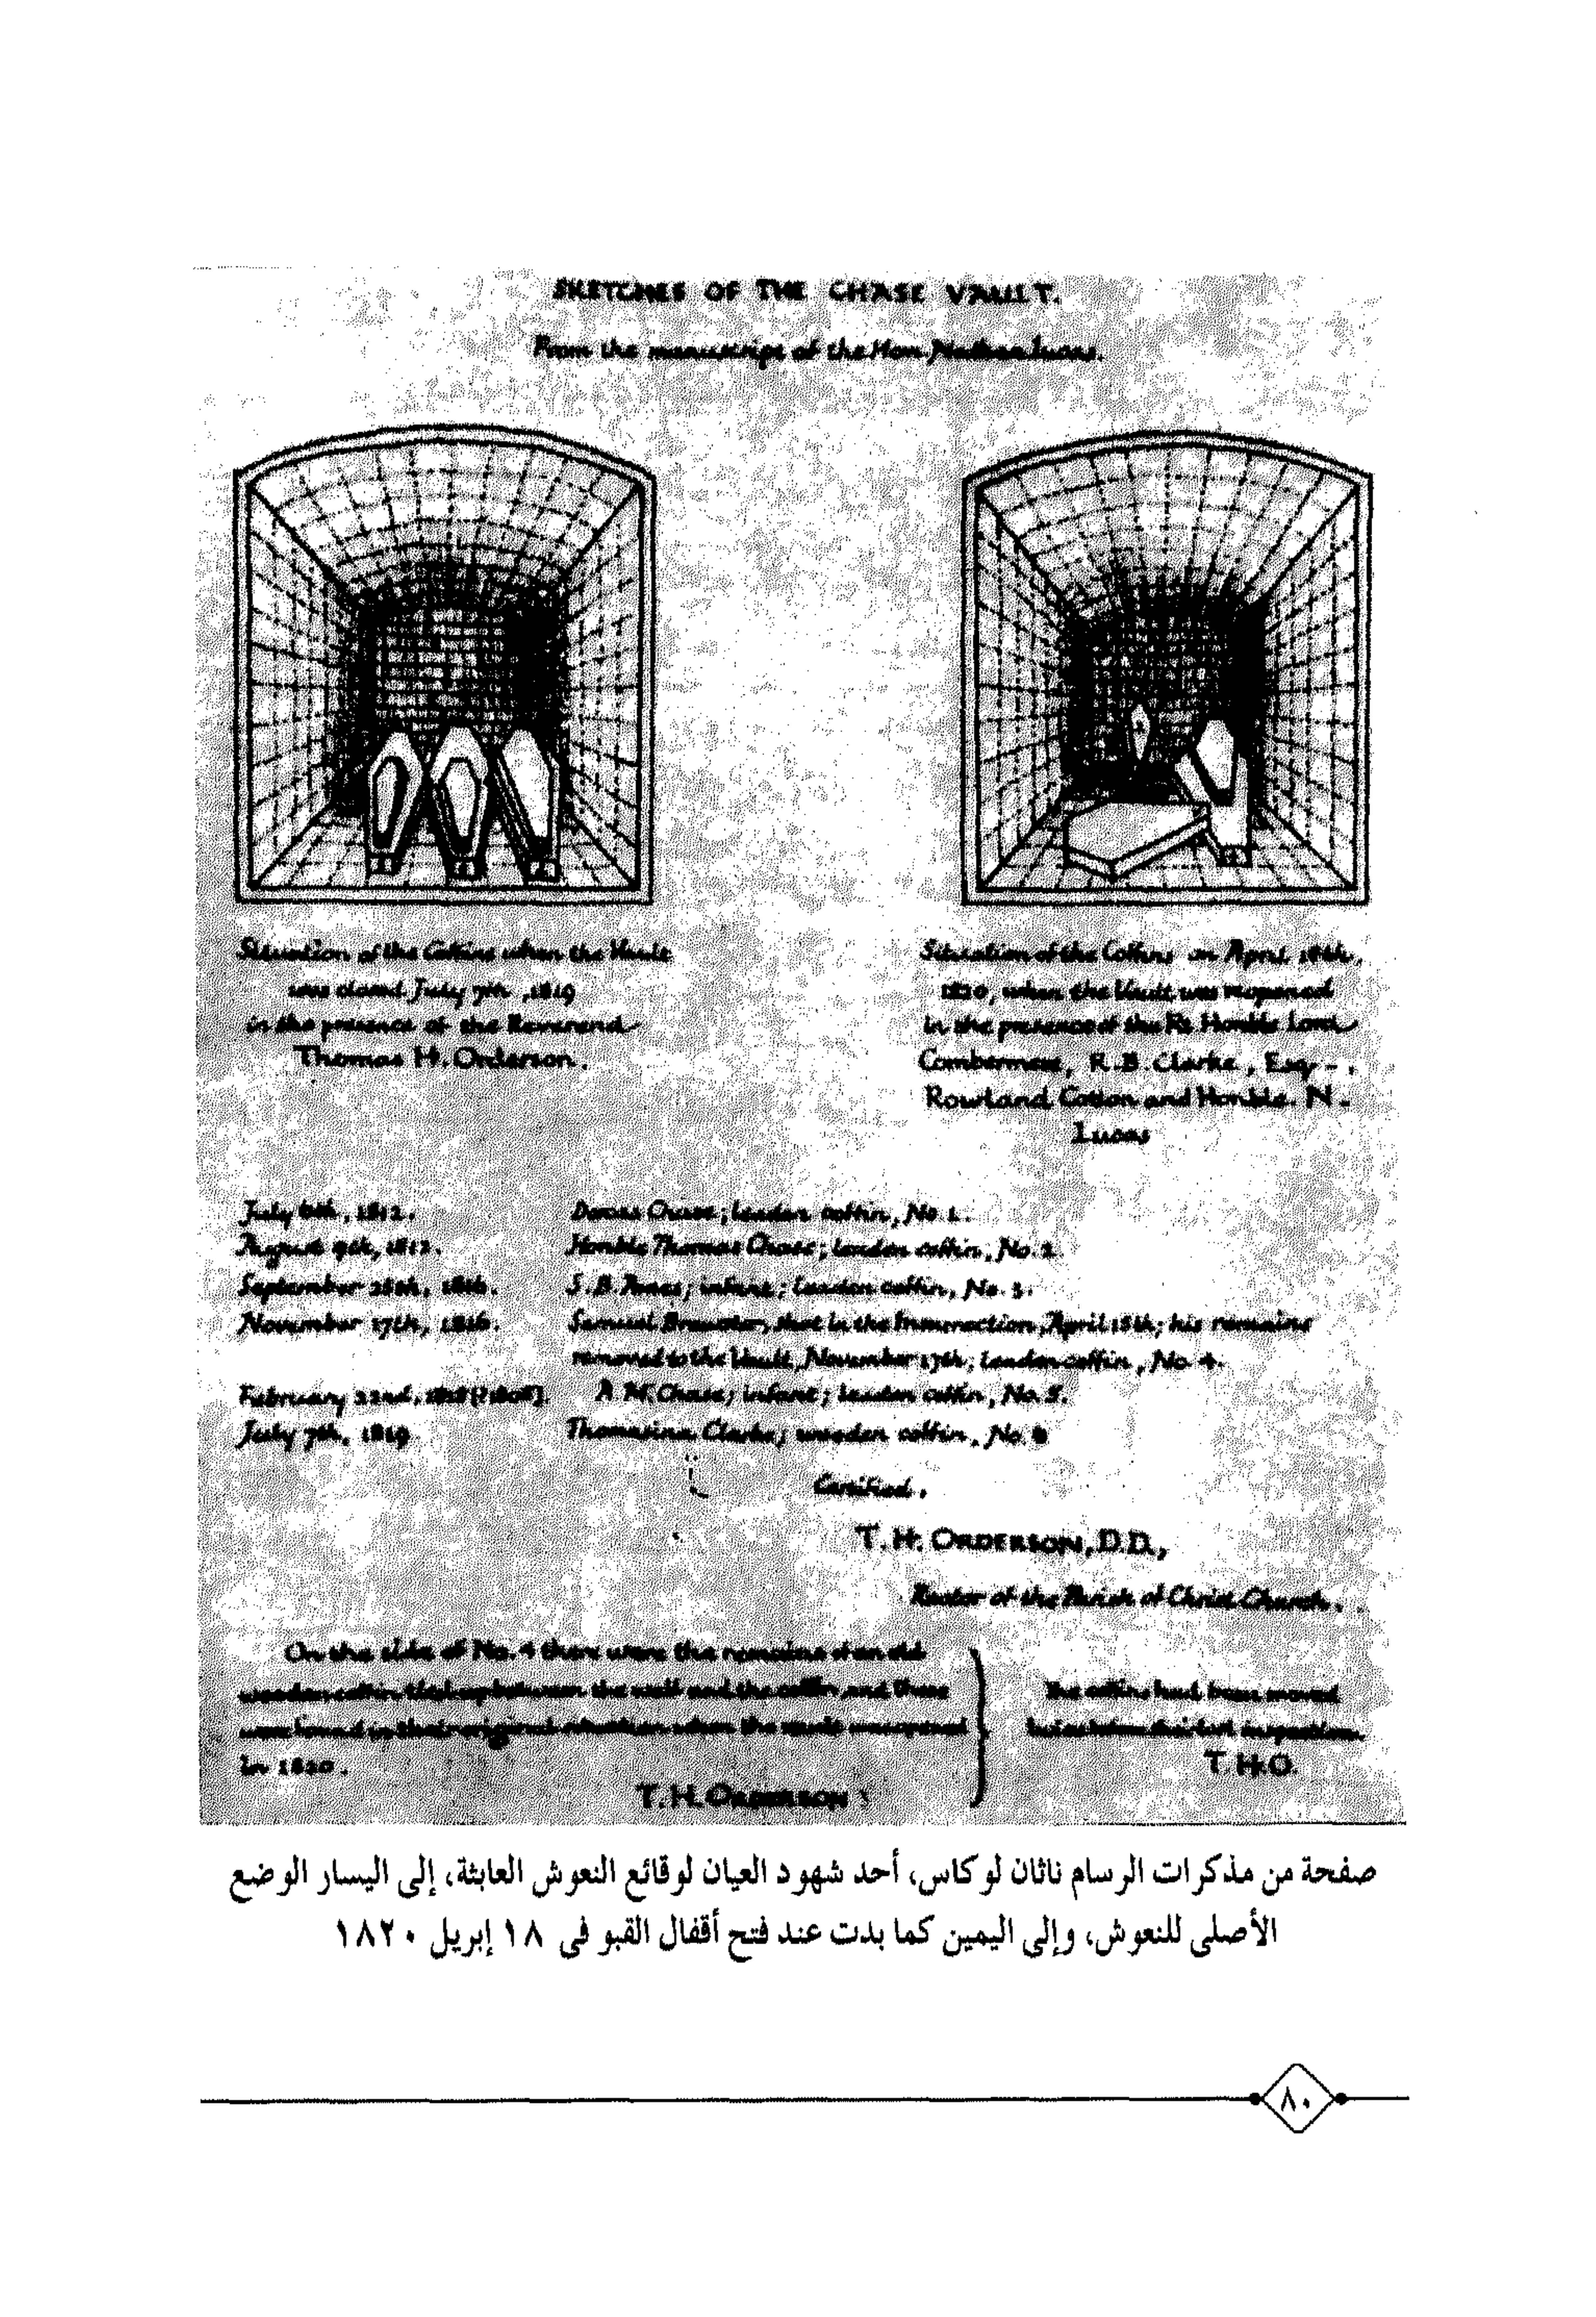 SKETCHES OF THE CHASE VAULT.
From the manuscript of the Hon. Nathan Lucas.
Situation of the Coffins when the Vault
was closed July 7th, 1819
in the presence of the Reverend
Thomas H. Orderson.
Situation of the Coffins on April 18th,
1820, when the Vault was reopened
in the presence of the Rt Honble Lord
Combermere, R.B. Clarke, Esq - .
Rowland Cotton and Honble. N.
Lucas
July 6th, 1812. Dorcas Chase; leaden coffin, No 1.
August 9th, 1812. Honble Thomas Chase; leaden coffin, No. 2.
September 25th, 1816. S. B. Ames; infant; leaden coffin, No. 3.
November 17th, 1816. Samuel Brewster, shot in the Insurrection, April 15th; his remains
removed to the Vault, November 17th; leaden coffin, No 4.
February 22nd, A. M. Chase; infant; leaden coffin, No. 5.
July 7th, 1819. Thomasina Clarke; wooden coffin, No. 6
Certified.
T. H. ORDERSON, D.D.,
Rector of the Parish of Christ Church.
On the side of No. 4 there were the remains of an old
wooden coffin tied up between the wall and the coffin, and these
were found in their original situation when the vault was opened
in 1820.
T. H. ORDERSON
The coffins had been moved
inspection.
T. H. O.
صفحة من مذكرات الرسام ناثان لوكاس، أحد شهود العيان لوقائع النعوش العابثة، إلى اليسار الوضع
الأصلى للنعوش، وإلى اليمين كما بدت عند فتح أقفال القبو فى ١٨ إبريل ١٨٢٠
٨٠